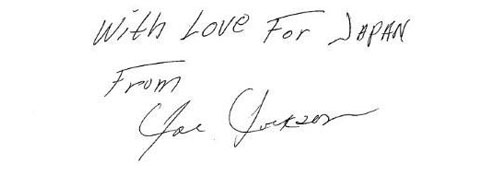 With Love For JAPAN
From
Joe Jackson